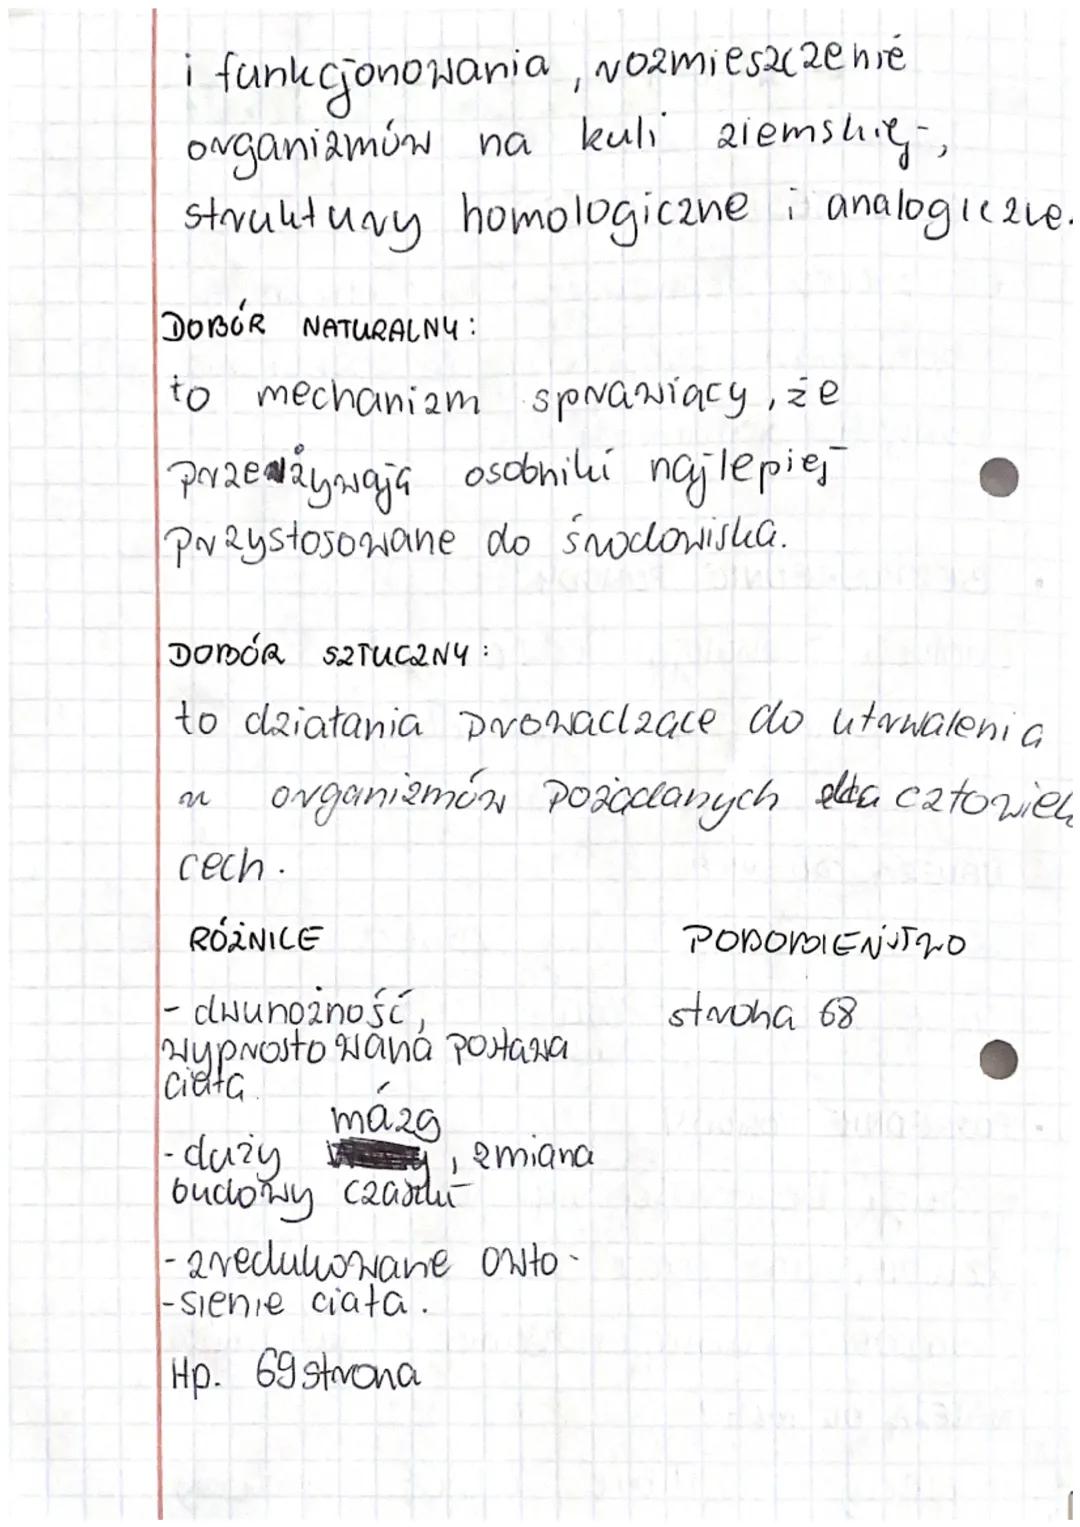 i funkcjonowania, rozmieszczenie
organizmów na kuli ziemskiej,
struktury homologiczne i analogiczne.
DOBÓR NATURALNY:
to mechanizm sprawiący, że
przeżywają osobniki najlepiej
przystosowane do środowiska.
DOBÓR SZTUCZNY:
to działania prowadzące do utrwalenia
u organizmów pożądanych dla człowiek
cech.
RÓŻNICE PODOBIEŃSTWO
- dwunożność, strona 68
wyprostowana postawa
ciała
mózg
- duży , zmiana
budowy czaszki
- zredukowane owło-
-sienie ciała.
Hp. 69 strona